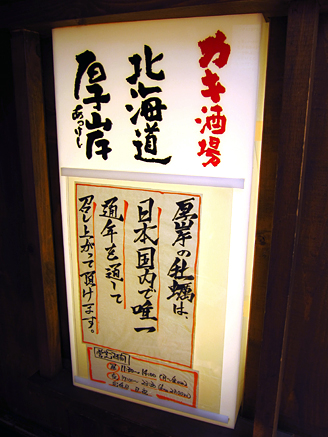 カキ酒場
北海道
厚岸
あっけし
厚岸の牡蠣は、
日本国内で唯一
通年を通して
召し上がって頂けます。